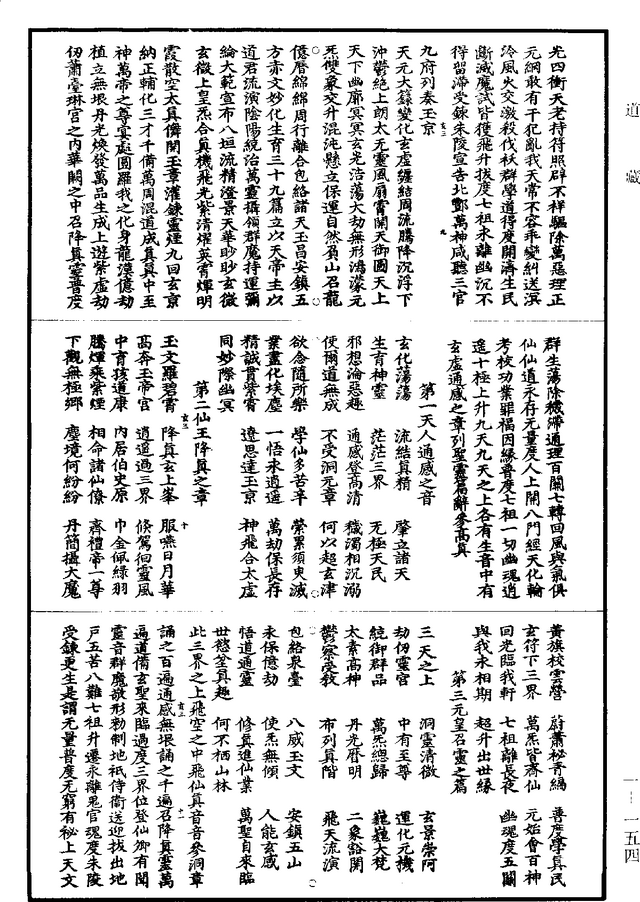 道藏
先四衝天老持得照辟不祥驅除萬惡理正
元綱敢有干犯亂我天常不容乖變糾送溟
泠風火交激殺伐袄群學道得度開濟生民
斷滅魔試皆獲飛升拔度七祖永離幽沉不
得留滯受鍊朱陵宣告北酆萬神咸聽三官
九府列奏玉京
天元大籙變化玄虛纏結周流騰降沉浮下
沖鬱絕上朗太無靈風扇霄開天御圖天上
天下幽廓冥冥玄光浩蕩大劫無形鴻濛元
炁雙象交升混沌懸立保運自然負山召龍
億曆綿綿周行離合包絡諸天玉昌安鎮五
方赤文妙化生育三十九篇立以天帝主以
道君流演陰陽統治萬靈攝領群魔持運彌
綸大範宣布八垣流精澄景天華眇眇玄微
玄微上皇炁合真機飛光紫清燿英霄煇明
霞散空太真儔開玉章灌鍊靈煙九回玄京
納正輔化三才千備萬周混道成真真中至
神萬帝之尊宴處圓羅我之化身龍漢億劫
植立無垠丹光煥發萬品生成上遊紫虛劫
仞蕭臺琳宮之內華闕之中召降真靈普度
群生蕩除穢滯通理百關七轉回風與氣俱
仙仙道永存無量度人上開八門經天化輪
考校功業罪福因緣普度七祖一切幽魂逍
遙十極上升九天九天之上各有生音中有
玄虛通感之章列聖靈篇辭參高真
第一天人通感之音
玄化蕩蕩　流結真精　肇立諸天
生育神靈　茫茫三界　無極天民
邪想淪惡趣　通感登高清　穢濁相沉溺
使爾道無成　不受洞元章　何以超玄津
欲念隨所樂　學仙多苦辛　縈累須臾滅
業畫化埃塵　一悟永逍遙　萬劫保長存
精誠貫紫霄　遼思達玉京　神飛合太虛
同妙際幽冥
第二仙王降真之章
玉文羅碧霄　降真玄上峯　服嚥日月華
高奔玉帝宮　逍遙過三界　倏駕徊靈風
中育孩道康　內居伯史原　巾金佩綠羽
騰煇乘紫煙　相命諸仙僚　齊禮帝一尊
下觀無極鄉　塵境何紛紛　丹簡攝大魔
黃旗校雲營　蔚蕭祕青編　善度學真民
玄符下三界　萬炁皆齊仙　元始會百神
回光臨我軒　七祖離長夜　幽魂度五關
與我永相期　超升出世緣
第三元皇召靈之篇
三天之上　洞靈清微　玄景崇阿
劫仞靈宮　中有至尊　運化元機
統御群品　萬炁總歸　巍巍大梵
太素高神　丹光曆明　二象豁開
鬱察茂教　布列真階　飛天流演
包絡泉臺　八威玉文　安鎮五山
永保億劫　使炁無傾　人能玄感
悟道通靈　修真進仙業　萬聖自來臨
世慾塗真趣　何不栖山林
此三界之上飛空之中飛仙真音音參洞章
誦之百遍通感無垠誦之千遍召降真靈萬
遍道備玄聖來臨過度三界位登仙卿有聞
靈音群魔敬形勑制地祇侍衛送迎拔出地
戶五苦八難七祖升遷永離鬼官魂度朱陵
受鍊更生是謂無量普度無窮有祕上天文
一—一五四